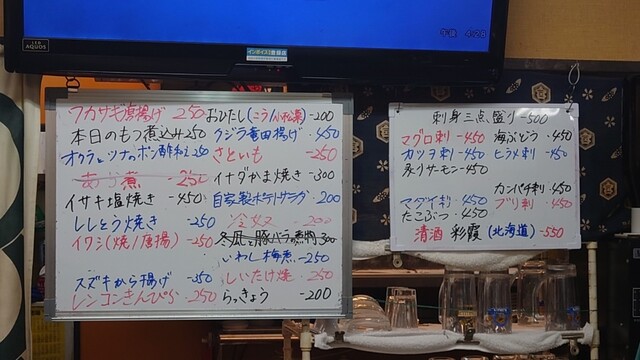 LED
AQUOS
インボイス登録店
午後 4:28
ワカサギ唐揚げ 250
本日のもつ煮込み 250
オクラとツナのポン酢和え 250
あら煮 -250
イサキ塩焼き -450
ししとう焼き -250
イワシ(焼/唐揚) -250
スズキから揚げ -350
レンコンきんぴら 250
おひたし(こう/小松菜) -200
クジラ竜田揚げ -450
さといも -250
イナダかま焼き -300
自家製ポテトサラダ 200
冷奴 -200
冬瓜と豚バラの煮物 300
いわし梅煮 -250
しいたけ焼 -250
らっきょう -200
刺身三点盛り -500
マグロ刺 -450 海ぶどう -450
カツヲ刺 -450 ヒラメ刺 -450
炙りサーモン -450
カンパチ刺 -450
マダイ刺 -450 ブリ刺 -450
たこぶつ -450
清酒 彩霞 (北海道) -550